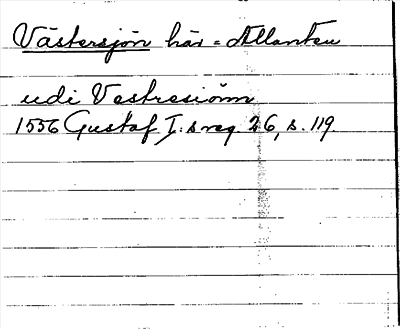 Västersjön här = Atlanten
udi Vestresiönn
1556 Gustaf I:s reg. 26, s. 119